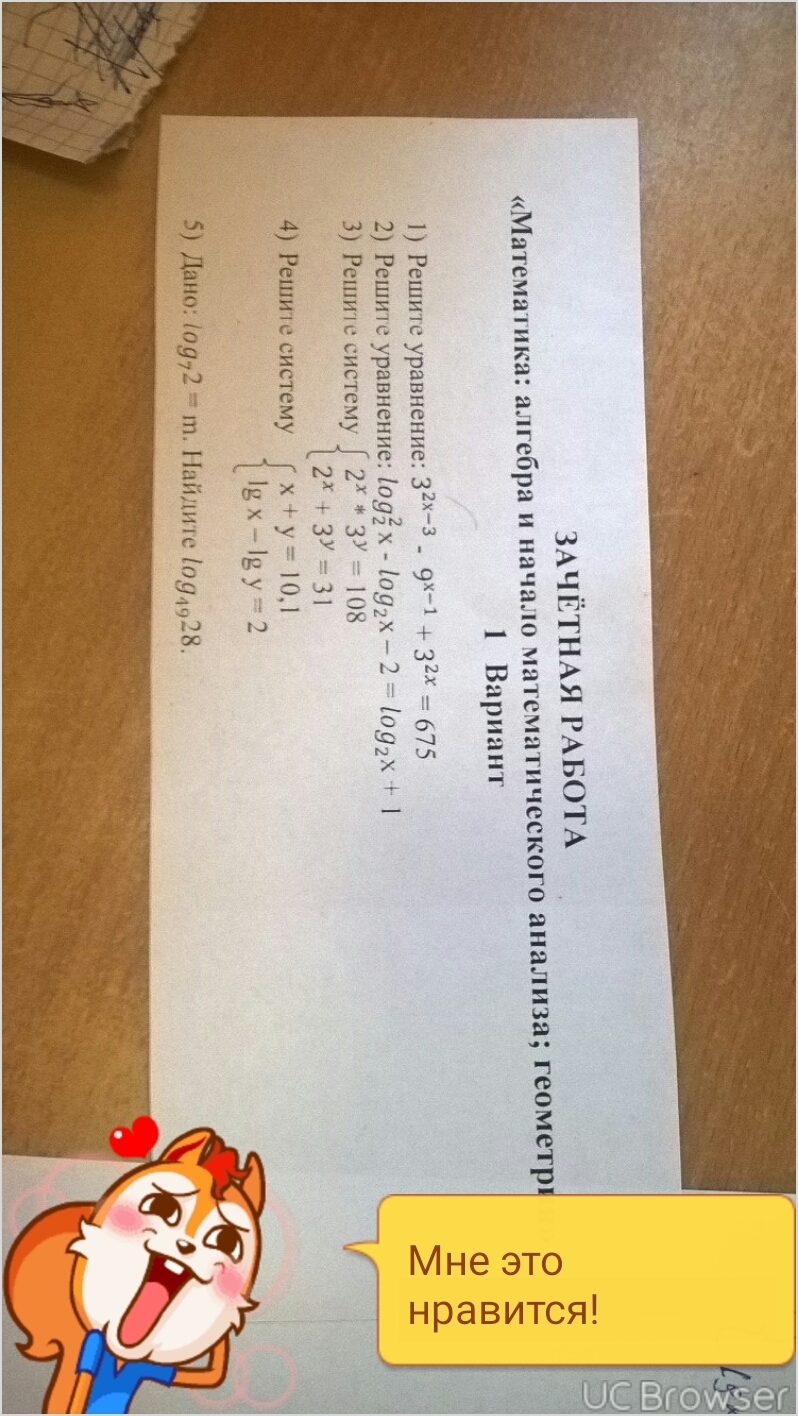 ЗАЧЁТНАЯ РАБОТА
«Математика: алгебра и начало математического анализа; геометри
1 Вариант
1) Решите уравнение: 3^{2x−3} - 9^{x−1} + 3^{2x} = 675
2) Решите уравнение: log₂²x - log₂x − 2 = log₂x + 1
3) Решите систему { 2^x * 3^y = 108
2^x + 3^y = 31
4) Решите систему { x + y = 10,1
lg x − lg y = 2
5) Дано: log₇2 = m. Найдите log₄₉28.
Мне это
нравится!
UC Browser